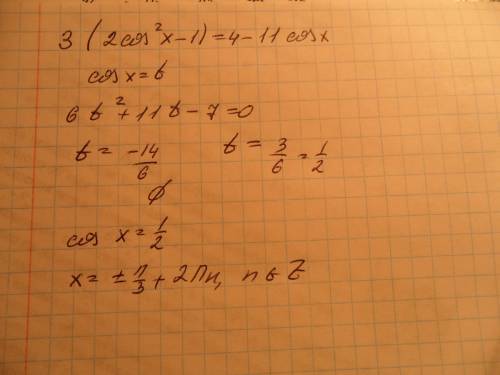 3 (2cos²x-1)=4-11 cosx
cos x=t
6t²+11t-7=0
t= -14/6 t= 3/6 = 1/2
∅
cos x= 1/2
x= ± π/3 + 2πn, n ∈ Z